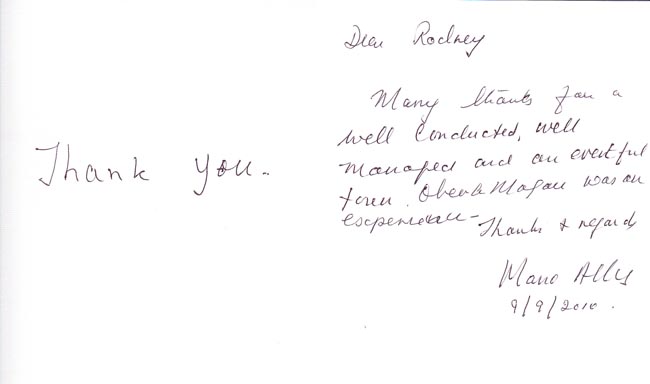 Thank you.
Dear Rodney
Many thanks for a
well conducted, well
managed and an eventful
was an
Thanks & regards
9/9/2010.